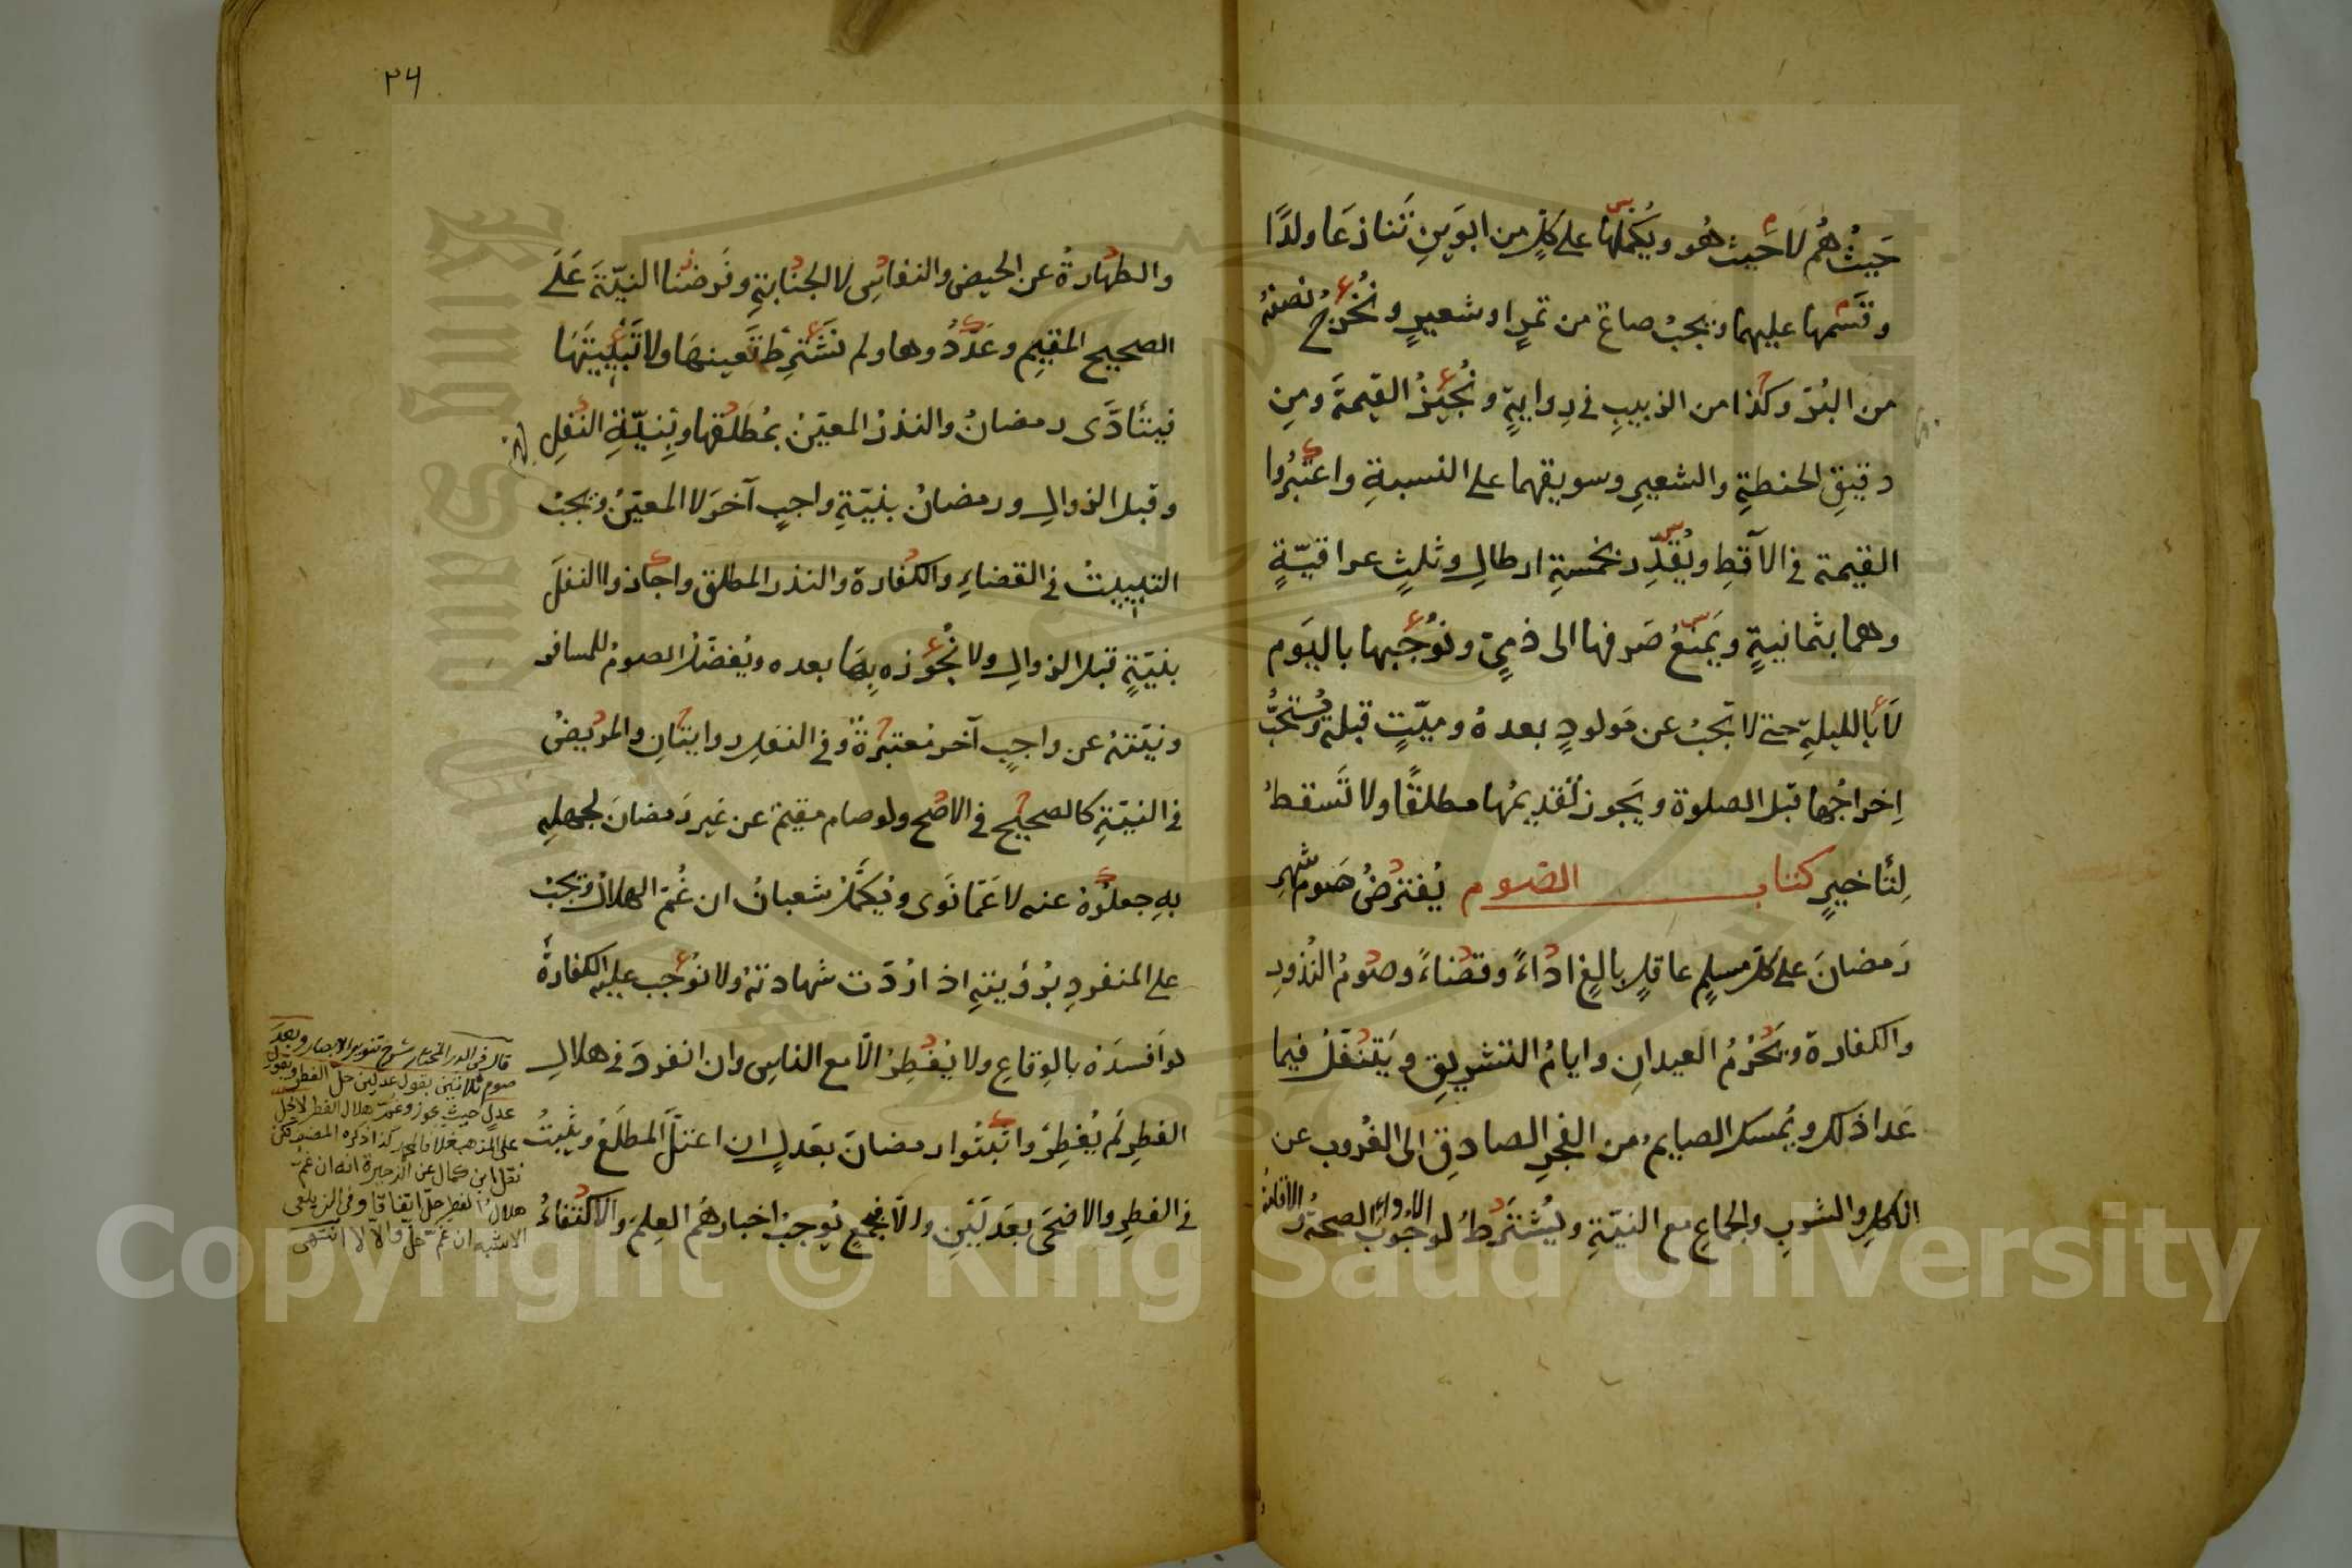 حَيثُ هُم لا حَيث هُو ويُكمّلها على كلٍ من ابوَينِ تَنازعَا ولدًا
وقَسّمها عليهما ويجبُ صاعٌ من تمرٍ او شعيرٍ ونُخرِجُ نصفَه
من البُرّ وكذا من الزبيبِ في روايةٍ ونُجيزُ القيمةَ ومِن
دقيقِ الحنطةِ والشعيرِ وسويقهما على النسبةِ واعتبرُوا
القيمة في الآقطِ ويُقدِّر بخمسةِ ارطالٍ وثلثٍ عراقيّةٍ
وهما بثمانيةٍ ويَمنعُ صَرفها الى ذميّ ونُوجبها باليَوم
لَا بالليلةِ حتى لا تجبُ عن مَولودٍ بعدهُ وميّتٍ قبله ويُستحَبُّ
اِخراجُها قبل الصلوة ويَجوز تقديمُها مطلقًا ولا تَسقطُ
لِتأخيرٍ كتاب الصّوم يُفترضُ صَوم شهرِ
رَمضانَ على كل مسلمٍ عاقلٍ بالغٍ اداءً وقضاءً وصومُ النُذورِ
والكفارة ويَحرُمُ العيدانِ وايامُ التشريقِ ويَتنفّلُ فيما
عَدا ذلك ويُمسك الصايمُ من الفجرِ الصادقِ الى الغُروب عن
الاكلِ والشربِ والجماعِ مع النيّةِ ويُشتَرطُ لوجُوب الاداءِ الصحةُ والاقامةُ
٣٤
والطهارةُ عن الحيض والنفاسِ لا الجنابةِ وفَرضنا النيّةَ عَلَى
الصحيح المقيمِ وعَدّدُوها ولم نَشترِط تَعيينهَا ولا تَبْييتَهَا
فيتأدَّى رمضانُ والنذرُ المعيّنُ بمُطلقها وبِنيّةِ النفلِ
وقبل الزوالِ ورمضانُ بنيّةِ واجبٍ آخرَ لا المعيّنُ ويجبُ
التبييتُ في القضاءِ والكفارة والنذر المطلق واجازوا النفلَ
بنيّةٍ قبل الزوالِ ولا نُجوزه بِهَا بعده ويُفضّلُ الصومُ للمسافر
ونيّتهُ عن واجبٍ آخر مُعتبرةٌ وفي النفلِ روايتانِ والمريضُ
في النيّةِ كالصحيح في الاصَح ولو صام مقيمٌ عن غير رَمضانَ لجهلِه
بهِ جعلُوهُ عنه لا عَمّا نَوى ويُكمّلُ شعبانُ ان غُمّ الهلالُ ويجبُ
على المنفردِ برُؤيتهِ اذا رُدّت شهادتهُ ولا نُوجب عليه الكفارةُ
لو افسدَهُ بالوِقاعِ ولا يُفطِرُ الّا مع الناسِ وان انفردَ في هلالِ
الفطرِ لَم يُفطِرْ واثبتُوا رمضانَ بعَدلٍ ان اعتلّ المطلَعُ ويثبتُ
في الفطرِ والاضحَى بعَدلَينِ والّا فجمعٌ يُوجبُ اخبارهُمُ العِلمَ والاكتفاءُ
قال في الدر المختار شرح تنوير الابصار وبعدَ
صوم ثلاثين بقول عدلين حلّ الفطر وبقول
عدلٍ حيث يجوز وغمّ هلال الفطر لا يحل
على المذهب خلافا لمحمد كذا ذكره المصنف لكن
نقل ابن كمال عن الذخيرة انه ان غمّ
هلال الفطر حلّ اتفاقا وفي الزيلعي
الاشبه ان غمّ حلّ والّا لا انتهى